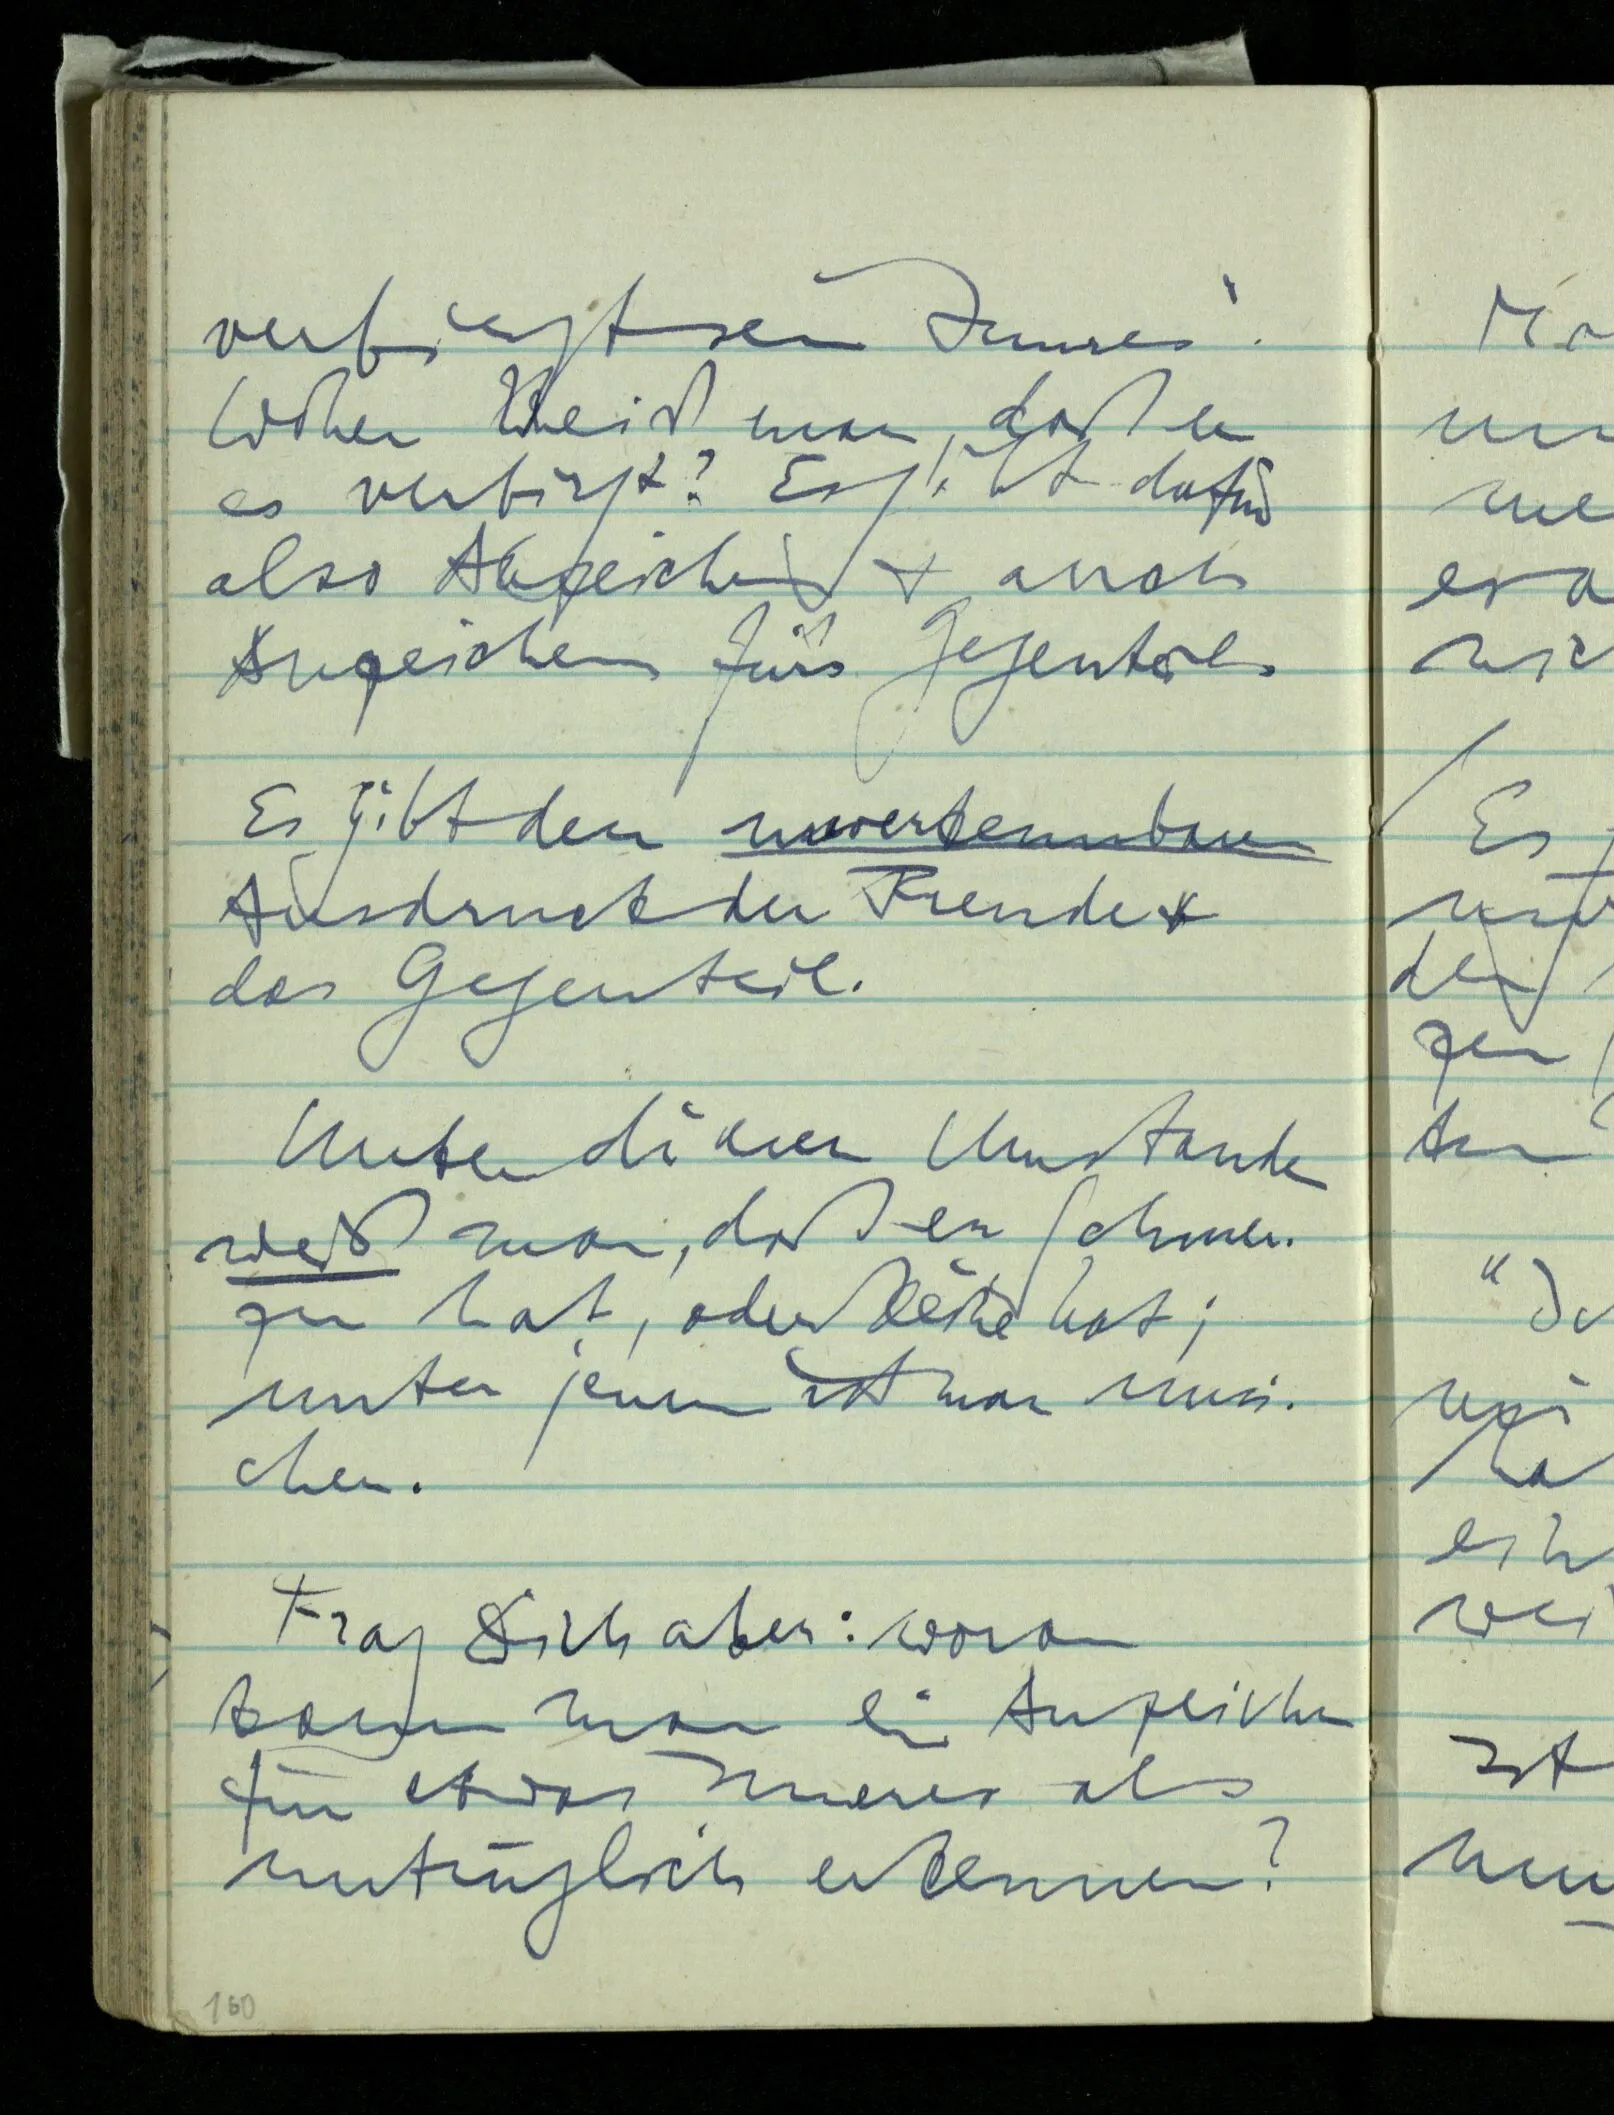 verbirgt sein Inneres".
Woher weiß man, daß er
es verbirgt? Es gibt dafür
also Anzeichen & auch
Anzeichen für's Gegenteil.
Es gibt den unverkennbaren
Ausdruck der Freude &
das Gegenteil.
Unter diesen Umständen
weiß man, daß er Schmer-
zen hat, oder keine hat;
unter jenen ist man unsi-
cher.
Frag Dich aber: woran
kann man ein Anzeichen
für etwas Inneres als
untrüglich erkennen?
160
Es
den
zen
"
ist